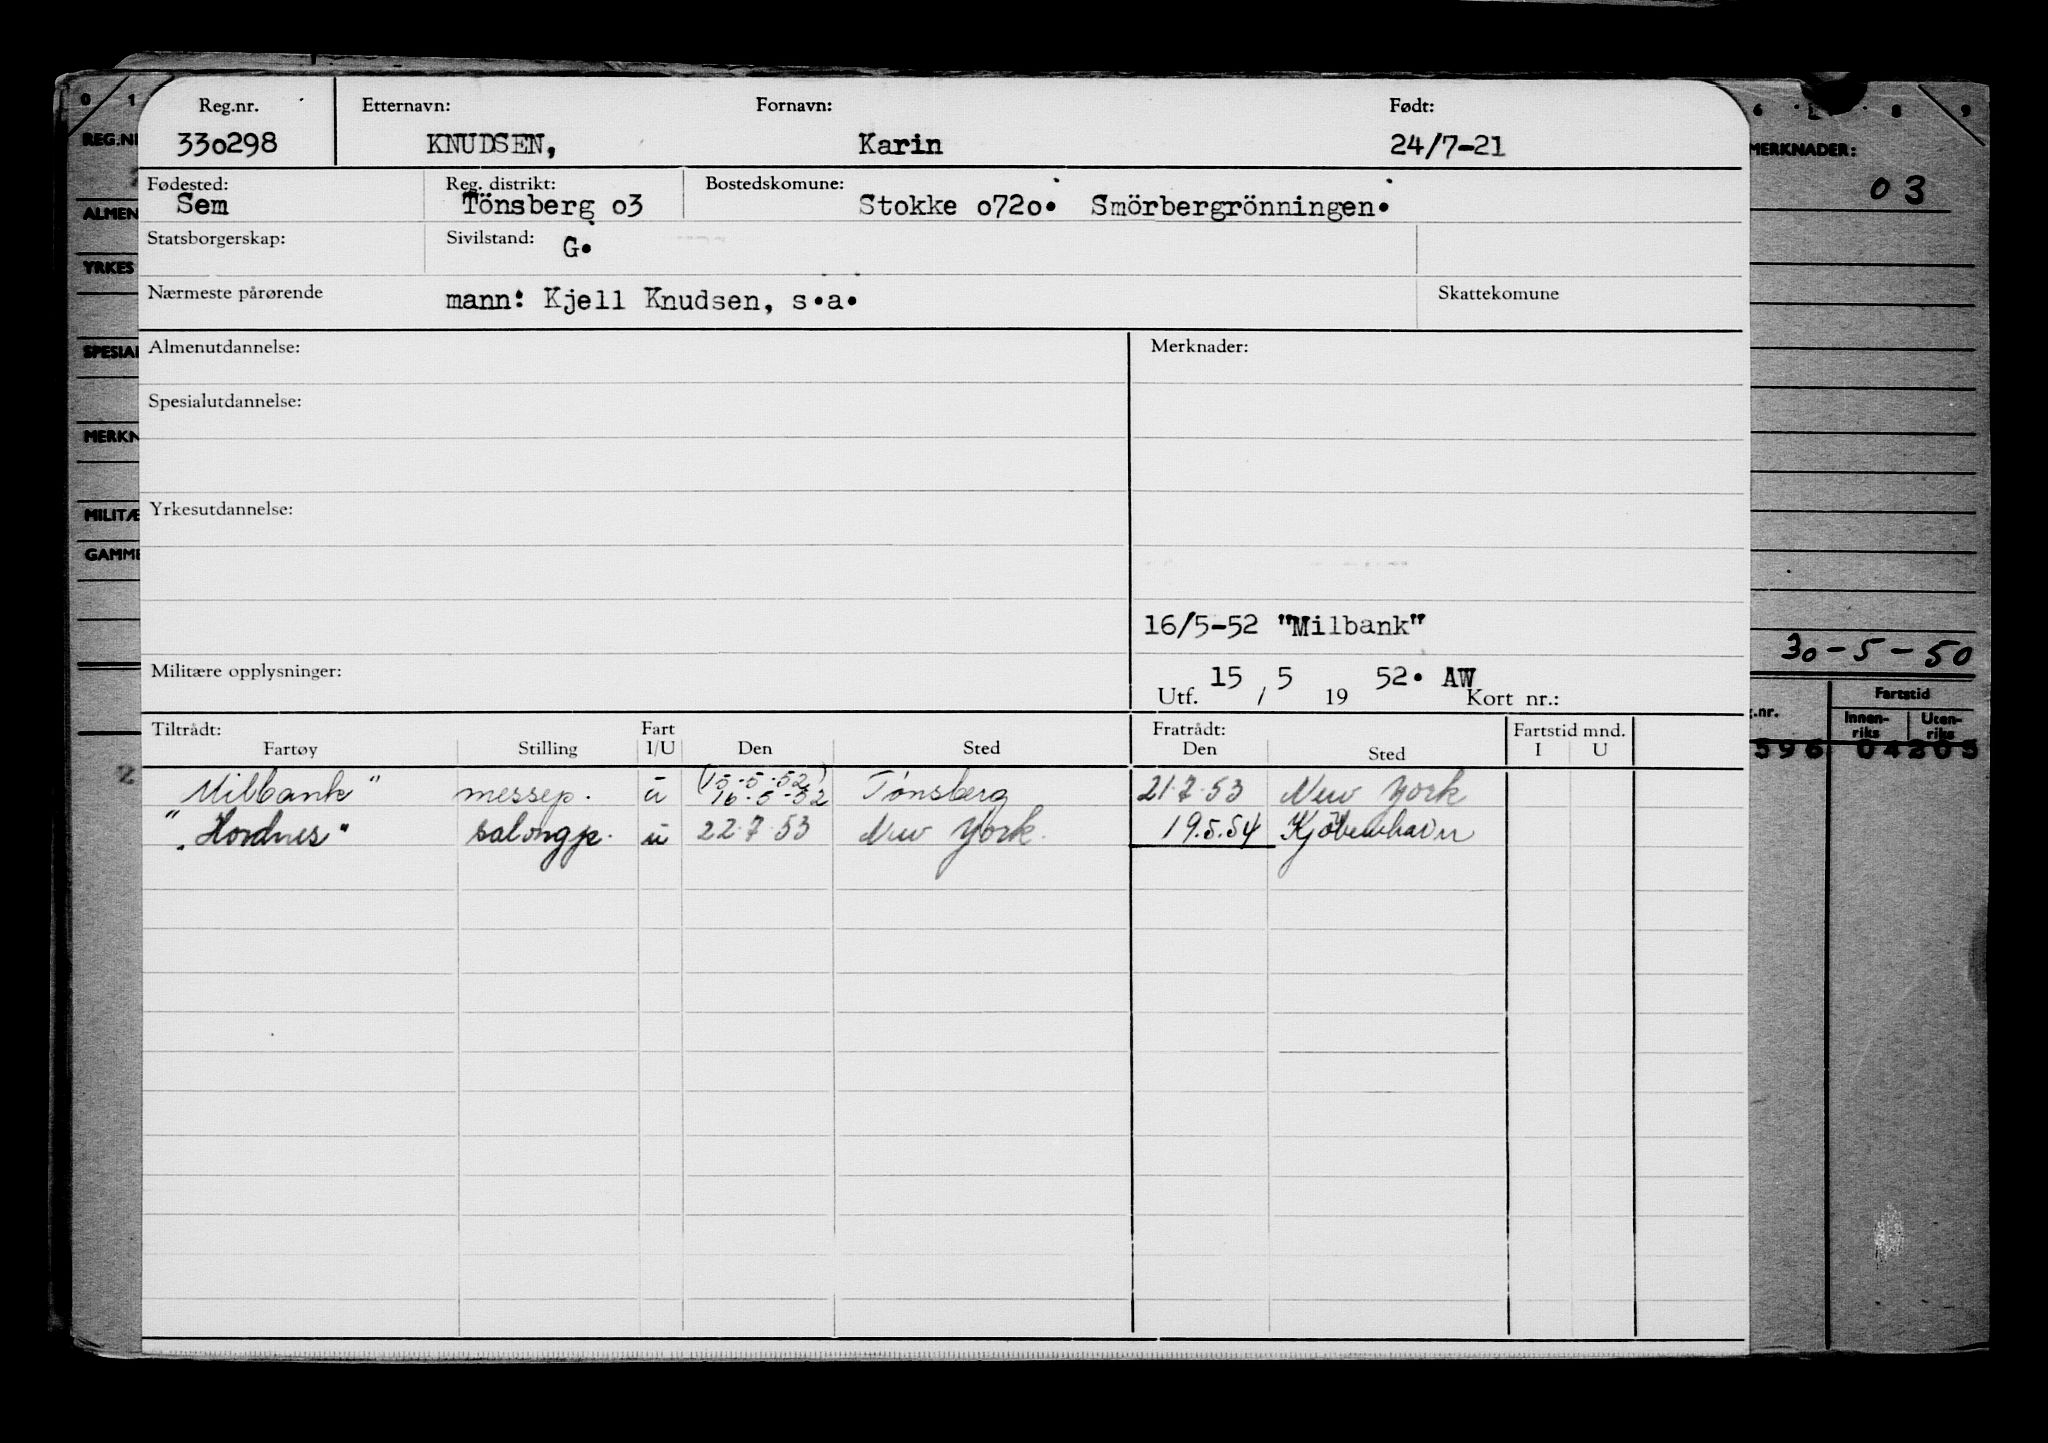 Reg.nr. Etternavn: Fornavn: Født:
330298 KNUDSEN, Karin 24/7-21
Fødested: Reg. distrikt: Bostedskomune:
Sem Tönsberg o3 Stokke o72o. Smörbergrönningen.
Statsborgerskap: Sivilstand: G.
Nærmeste pårørende mann: Kjell Knudsen, s.a. Skattekomune
Almenutdannelse: Merknader:
Spesialutdannelse:
Yrkesutdannelse:
16/5-52 "Milbank"
Militære opplysninger:
Utf. 15 / 5 19 52. AW Kort nr.:
Tiltrådt: Fart Fratrådt: Fartstid mnd.
Fartøy Stilling I/U Den Sted Den Sted I U
"Milbank" messep. u (15-5-52) 16-5-52 Tønsberg 21.7.53 New York
"Hordnes" salongp. u 22.7.53 New York. 19.5.54 Kjøbenhavn
0 1
REG.NR
ALMEN
YRKES
SPESIAL
MERKN
MILITÆ
GAMME
2
6 8 9
MERKNADER:
03
30-5-50
Fartstid
.nr. Innen-riks Uten-riks
596 04205